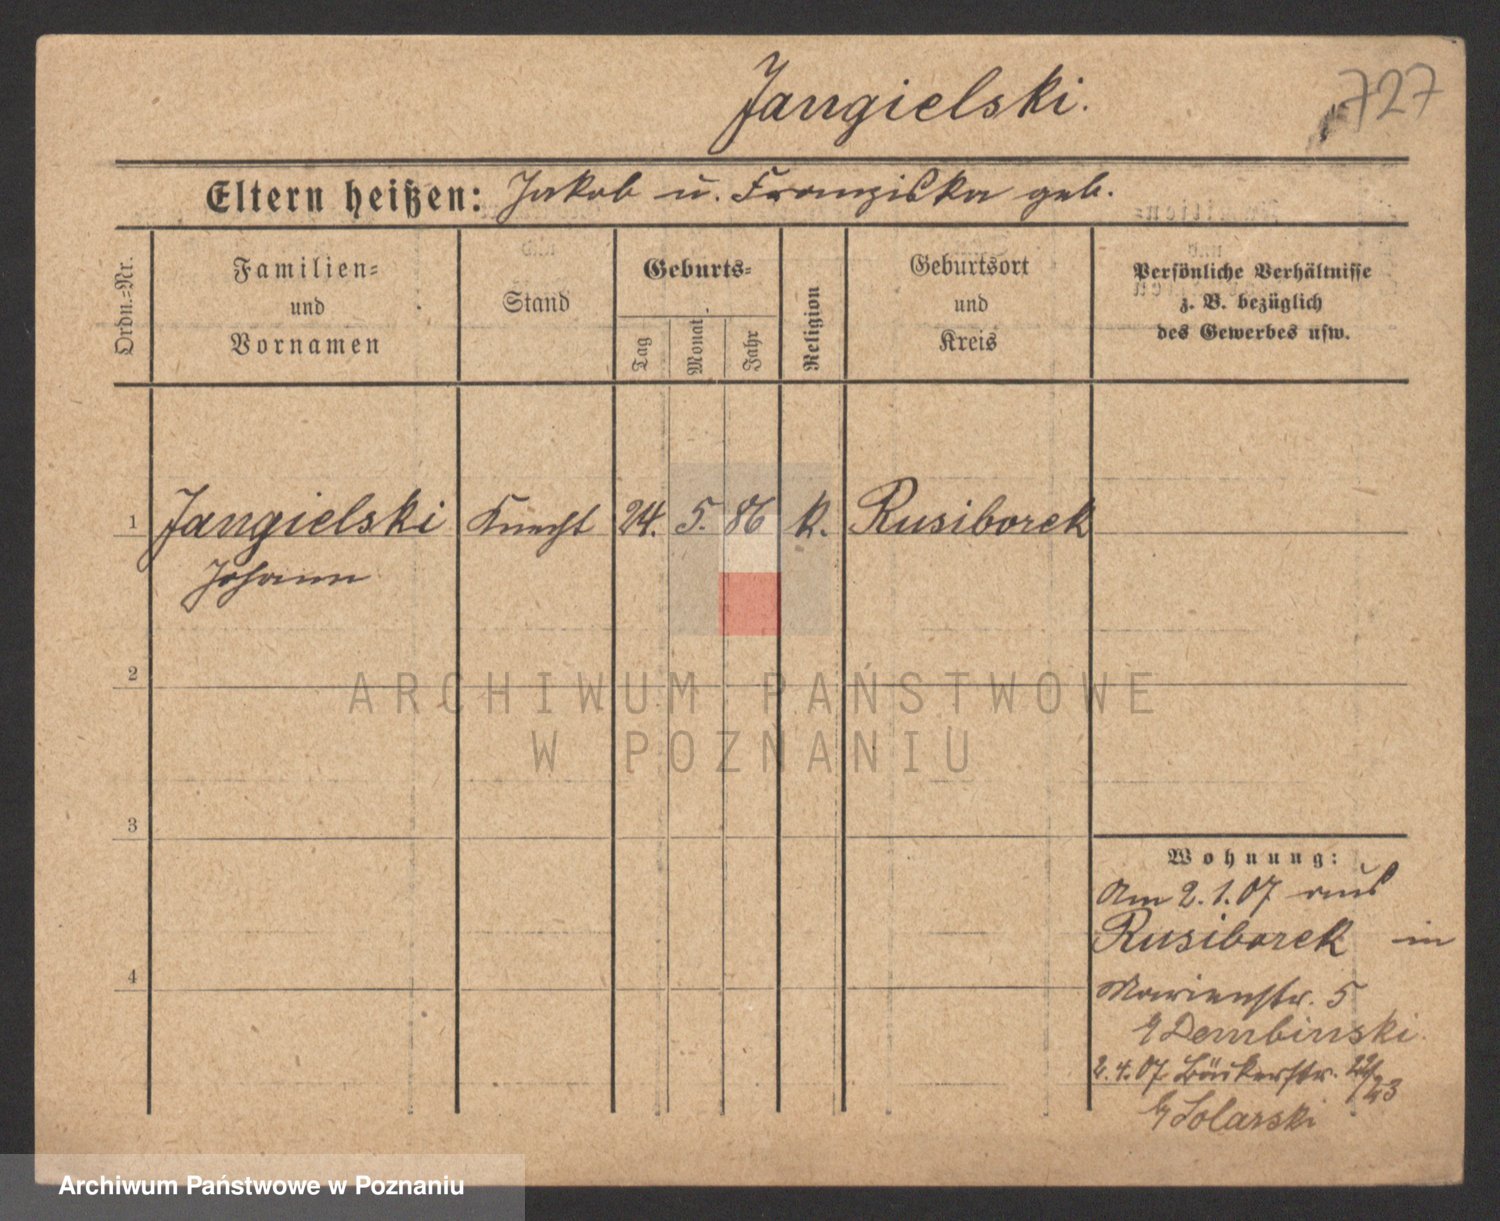 Jangielski.
727
Eltern heißen: Jakob u. Franziska geb.
Ordn.=Nr.
Familien=
und
Vornamen
Stand
Geburts=
Tag
Monat
Jahr
Religion
Geburtsort
und
Kreis
Persönliche Verhältnisse
z. B. bezüglich
des Gewerbes usw.
1 Jangielski Knecht 24. 5. 86 k. Rusiborek
Johann
2
ARCHIWUM PAŃSTWOWE
W POZNANIU
3
Wohnung:
Am 2.1.07 aus
Rusiborek in
4
Marienstr. 5
Dembinski.
2.4.07 Bäckerstr. 22/23
Solarski
Archiwum Państwowe w Poznaniu